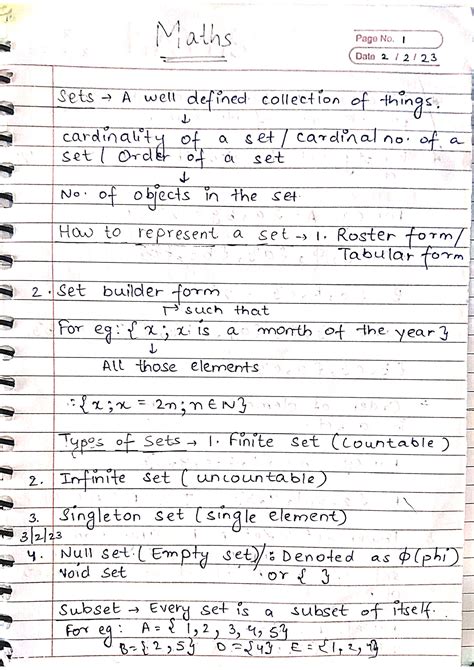 Maths
Page No. 1
Date 2/2/23
Sets → A well defined collection of things.
↓
cardinality of a set / cardinal no. of a
set / Order of a set
↓
No. of objects in the set
How to represent a set → 1. Roster form/
Tabular form
2. Set builder form
↱ such that
For eg: { x ; x is a month of the year }
↓
All those elements
: { x ; x = 2n ; n ∈ N }
Types of Sets → 1. Finite set (countable)
2. Infinite set (uncountable)
3. Singleton set (single element)
3/2/23
4. Null set (Empty set)/ : Denoted as ϕ(phi)
Void set or { }
Subset → Every set is a subset of itself.
For eg: A = { 1, 2, 3, 4, 5}
B = { 2, 5} D = {4} E = {1, 2, 4}